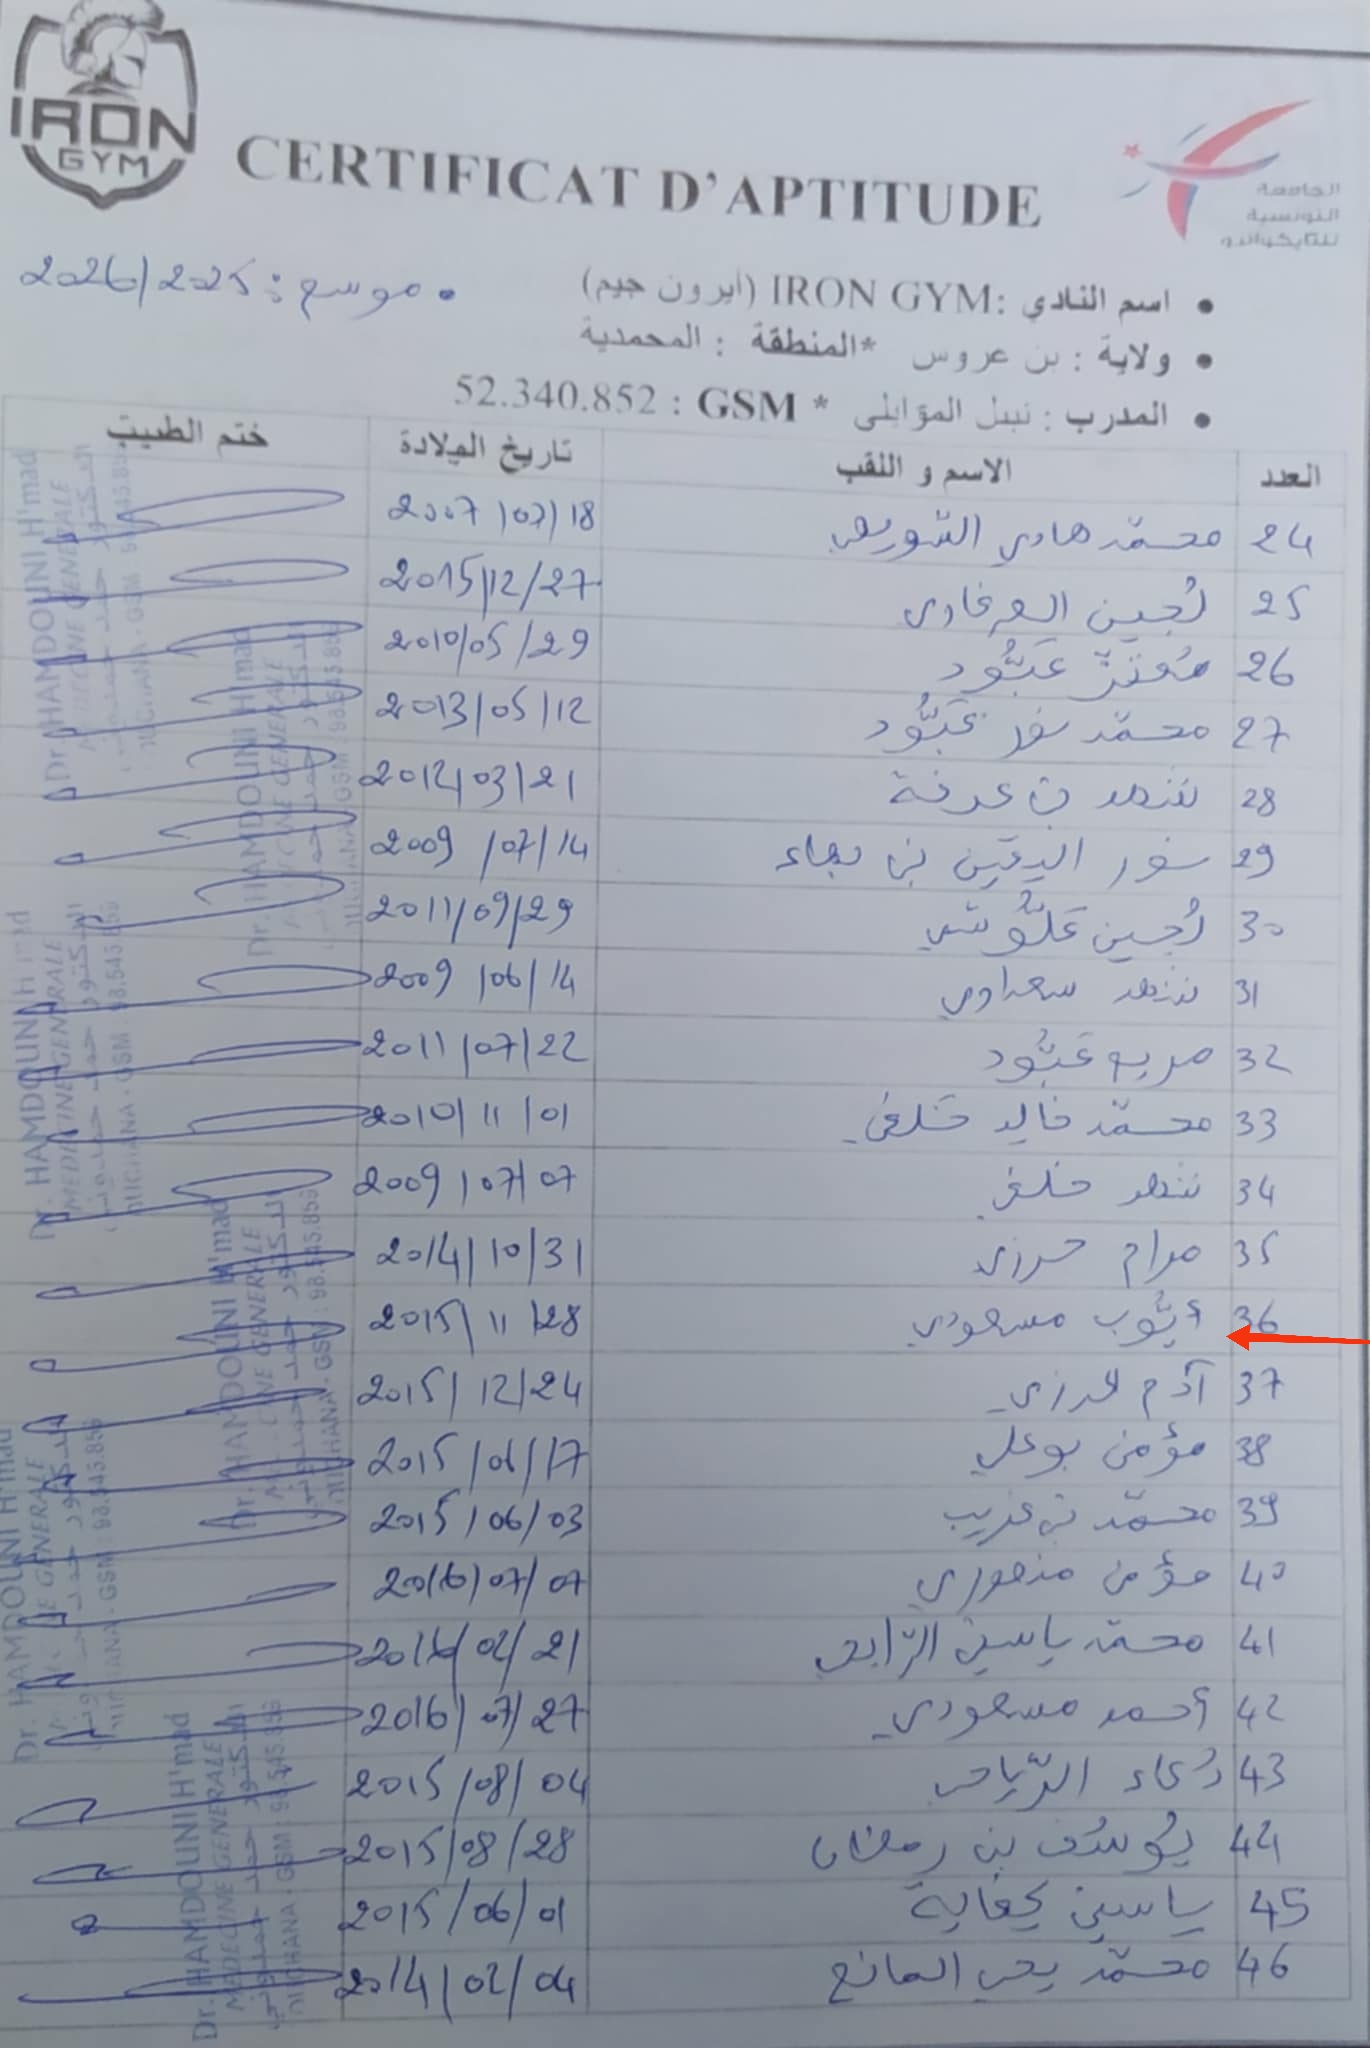 IRON
GYM
CERTIFICAT D'APTITUDE
الجامعة
التونسية
للتايكواندو
• اسم النادي :IRON GYM (أيرون جيم)
• موسم : 2026/2025
• ولاية : بن عروس *المنطقة : المحمدية
• المدرب : نبيل المؤابلي * GSM : 52.340.852
العدد الاسم و اللقب تاريخ الولادة ختم الطبيب
24 محمّد هادي الشوريحي 2007/07/18
25 لُجين العرفاوي 2015/12/27
26 مُعتز عَبّود 2010/05/29
27 محمّد نور عَبُّود 2013/05/12
28 شهد بن عرفة 2012/03/21
29 نور اليقين بن بهاء 2009/07/14
30 لُجين عَلُّوشي 2011/09/29
31 شهد سعداوي 2009/06/14
32 مريم عَبُّود 2011/07/22
33 محمّد خالد خلفي 2010/11/01
34 شهد خلفي 2009/07/07
35 مرام حرزي 2014/10/31
36 أيّوب مسعودي 2015/11/28
37 آدم الحرزي 2015/12/24
38 مؤمن بوعلي 2015/06/17
39 محمّد بن غريب 2015/06/03
40 مؤمن منصوري 2016/07/07
41 محمّد ياسين الرّابحي 2016/02/21
42 أحمد مسعودي 2016/07/27
43 دُعاء الرّياحي 2015/08/04
44 يُوسُف بن رمضان 2015/08/28
45 ياسين كفاية 2015/06/01
46 محمّد يحي المانع 2014/02/04
Dr. HAMDOUNI H'mad
MEDECINE GENERALE
GSM : 98.545.856